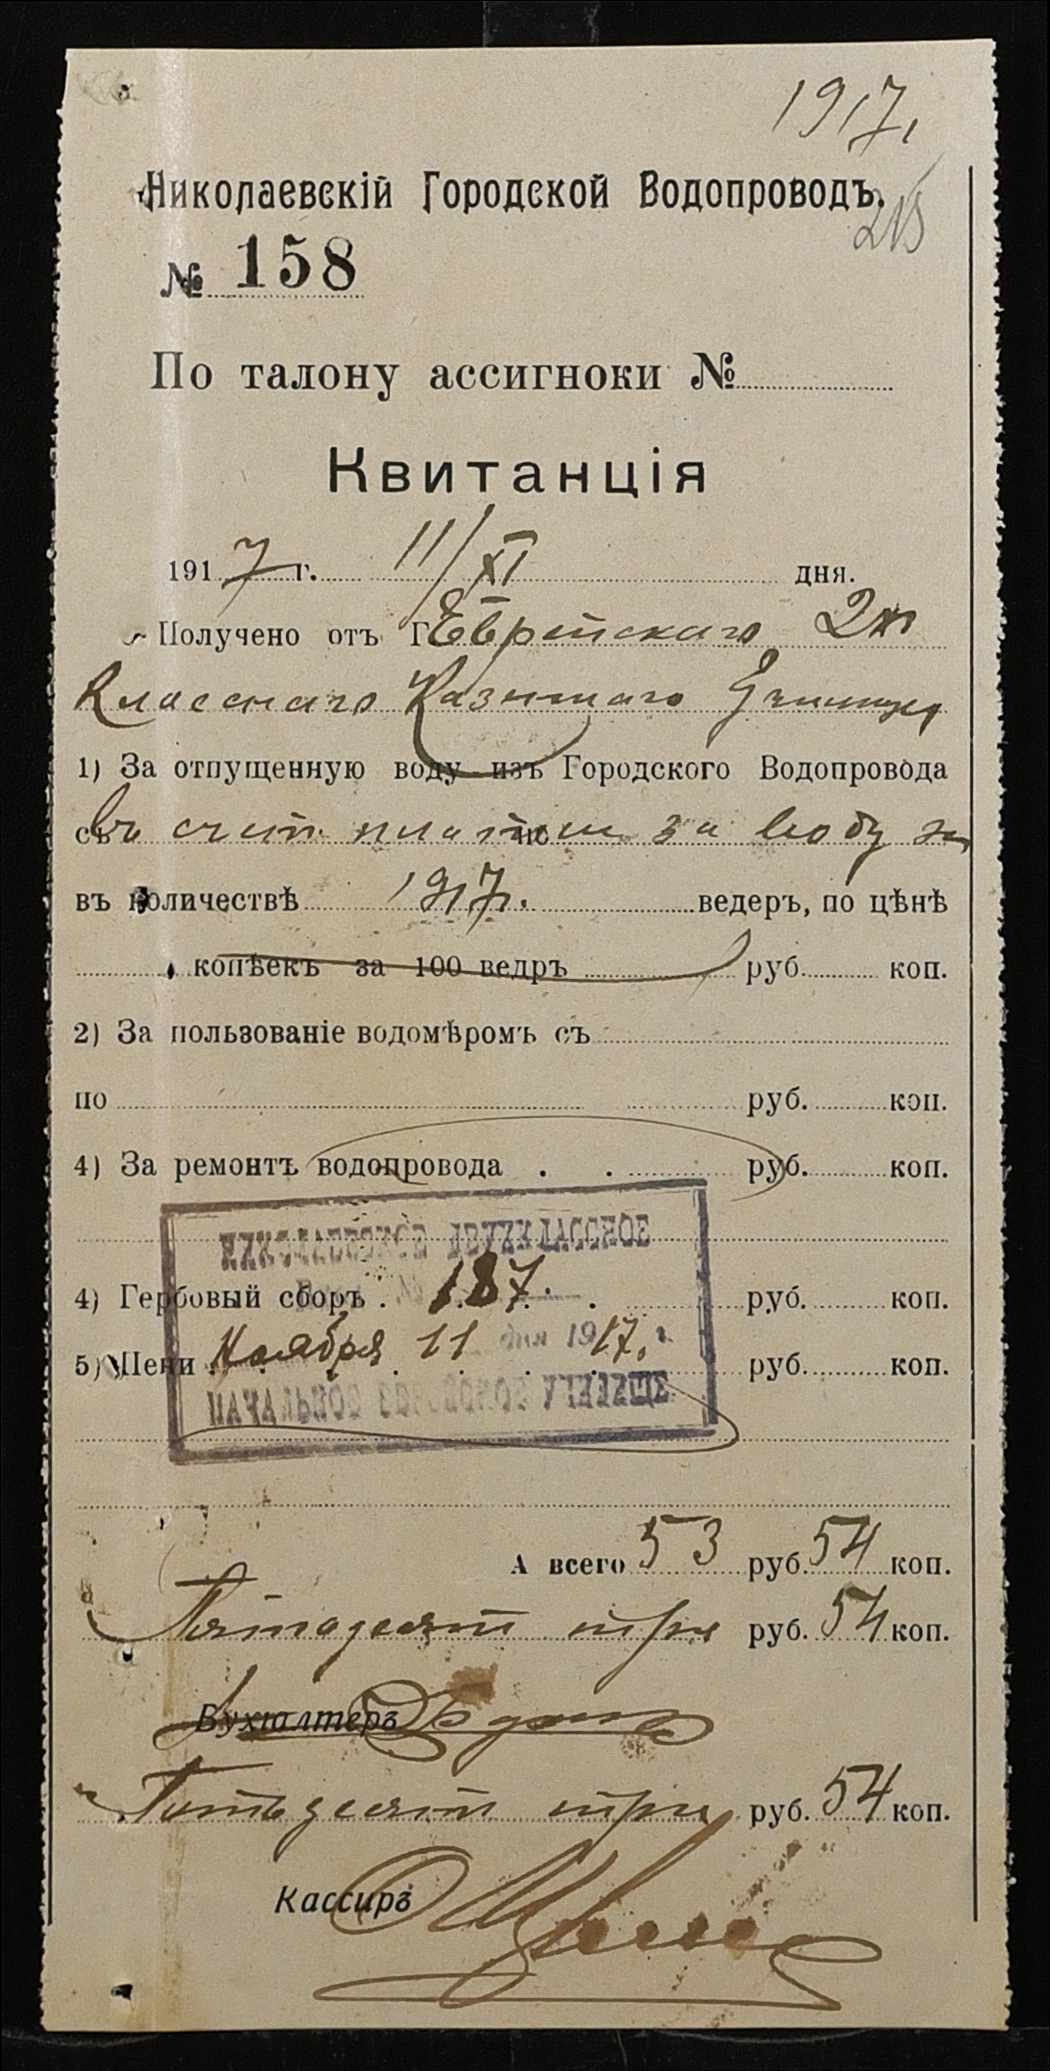 1917.
Николаевскій Городской Водопроводъ.
№ 158
По талону ассигноки №
Квитанція
1917 г. 11/XI дня.
Получено отъ Г Еврейскаго 2хъ
Класснаго Казеннаго Училища
1) За отпущенную воду изъ Городского Водопровода
съ въ счетъ платы по за воду за
въ количествѣ 1917 г. ведеръ, по цѣнѣ
копѣекъ за 100 ведръ руб. коп.
2) За пользованіе водомѣромъ съ
по руб. коп.
4) За ремонтъ водопровода . . руб. коп.
НИКОЛАЕВСКОЕ ДВУХКЛАССНОЕ
4) Гербовый сборъ . № 187. . руб. коп.
5) Пени Ноября 11 дня 1917 г. руб. коп.
НАЧАЛЬНОЕ УЧИЛИЩЕ
А всего 53 руб. 54 коп.
Пятьдесят три руб. 54 коп.
Бухгалтеръ
Пятьдесят три руб. 54 коп.
Кассиръ